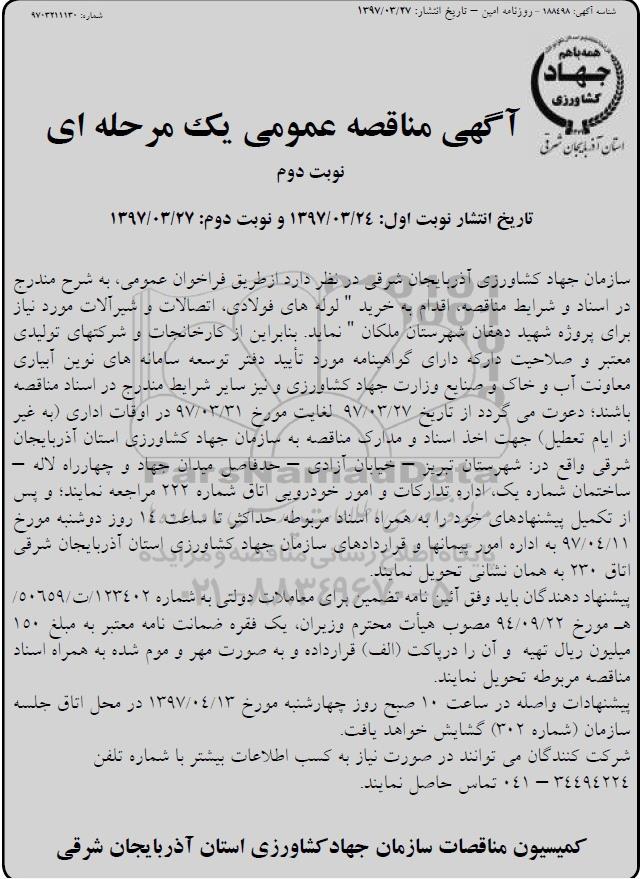 شناسه آگهی: ۱۸۸۴۹۸ - روزنامه امین – تاریخ انتشار: ۱۳۹۷/۰۳/۲۷
شماره: ۹۷۰۳۲۱۱۱۳۰
همه با هم
جهاد
کشاورزی
استان آذربایجان شرقی
آگهی مناقصه عمومی یک مرحله ای
نوبت دوم
تاریخ انتشار نوبت اول: ۱۳۹۷/۰۳/۲۴ و نوبت دوم: ۱۳۹۷/۰۳/۲۷
سازمان جهاد کشاورزی آذربایجان شرقی در نظر دارد ازطریق فراخوان عمومی، به شرح مندرج
در اسناد و شرایط مناقصه، اقدام به خرید " لوله های فولادی، اتصالات و شیرآلات مورد نیاز
برای پروژه شهید دهقان شهرستان ملکان " نماید. بنابراین از کارخانجات و شرکتهای تولیدی
معتبر و صلاحیت دارکه دارای گواهینامه مورد تأیید دفتر توسعه سامانه های نوین آبیاری
معاونت آب و خاک و صنایع وزارت جهاد کشاورزی و نیز سایر شرایط مندرج در اسناد مناقصه
باشند؛ دعوت می گردد از تاریخ ۹۷/۰۳/۲۷ لغایت مورخ ۹۷/۰۳/۳۱ در اوقات اداری (به غیر
از ایام تعطیل) جهت اخذ اسناد و مدارک مناقصه به سازمان جهاد کشاورزی استان آذربایجان
شرقی واقع در: شهرستان تبریز – خیابان آزادی – حدفاصل میدان جهاد و چهارراه لاله –
ساختمان شماره یک، اداره تدارکات و امور خودرویی اتاق شماره ۲۲۲ مراجعه نمایند؛ و پس
از تکمیل پیشنهادهای خود را به همراه اسناد مربوطه حداکثر تا ساعت ۱۴ روز دوشنبه مورخ
۹۷/۰۴/۱۱ به اداره امور پیمانها و قراردادهای سازمان جهاد کشاورزی استان آذربایجان شرقی
اتاق ۲۳۰ به همان نشانی تحویل نمایند.
پیشنهاد دهندگان باید وفق آئین نامه تضمین برای معاملات دولتی به شماره ۱۲۳۴۰۲/ت/۵۰۶۵۹
هـ مورخ ۹۴/۰۹/۲۲ مصوب هیأت محترم وزیران، یک فقره ضمانت نامه معتبر به مبلغ ۱۵۰
میلیون ریال تهیه و آن را درپاکت (الف) قرارداده و به صورت مهر و موم شده به همراه اسناد
مناقصه مربوطه تحویل نمایند.
پیشنهادات واصله در ساعت ۱۰ صبح روز چهارشنبه مورخ ۱۳۹۷/۰۴/۱۳ در محل اتاق جلسه
سازمان (شماره ۳۰۲) گشایش خواهد یافت.
شرکت کنندگان می توانند در صورت نیاز به کسب اطلاعات بیشتر با شماره تلفن
۳۴۴۹۴۲۲۴ – ۰۴۱ تماس حاصل نمایند.
کمیسیون مناقصات سازمان جهادکشاورزی استان آذربایجان شرقی
ParsNamadData
پایگاه اطلاع رسانی مناقصه و مزایده
۰۲۱-۸۸۳۴۹۶۷۰-۵